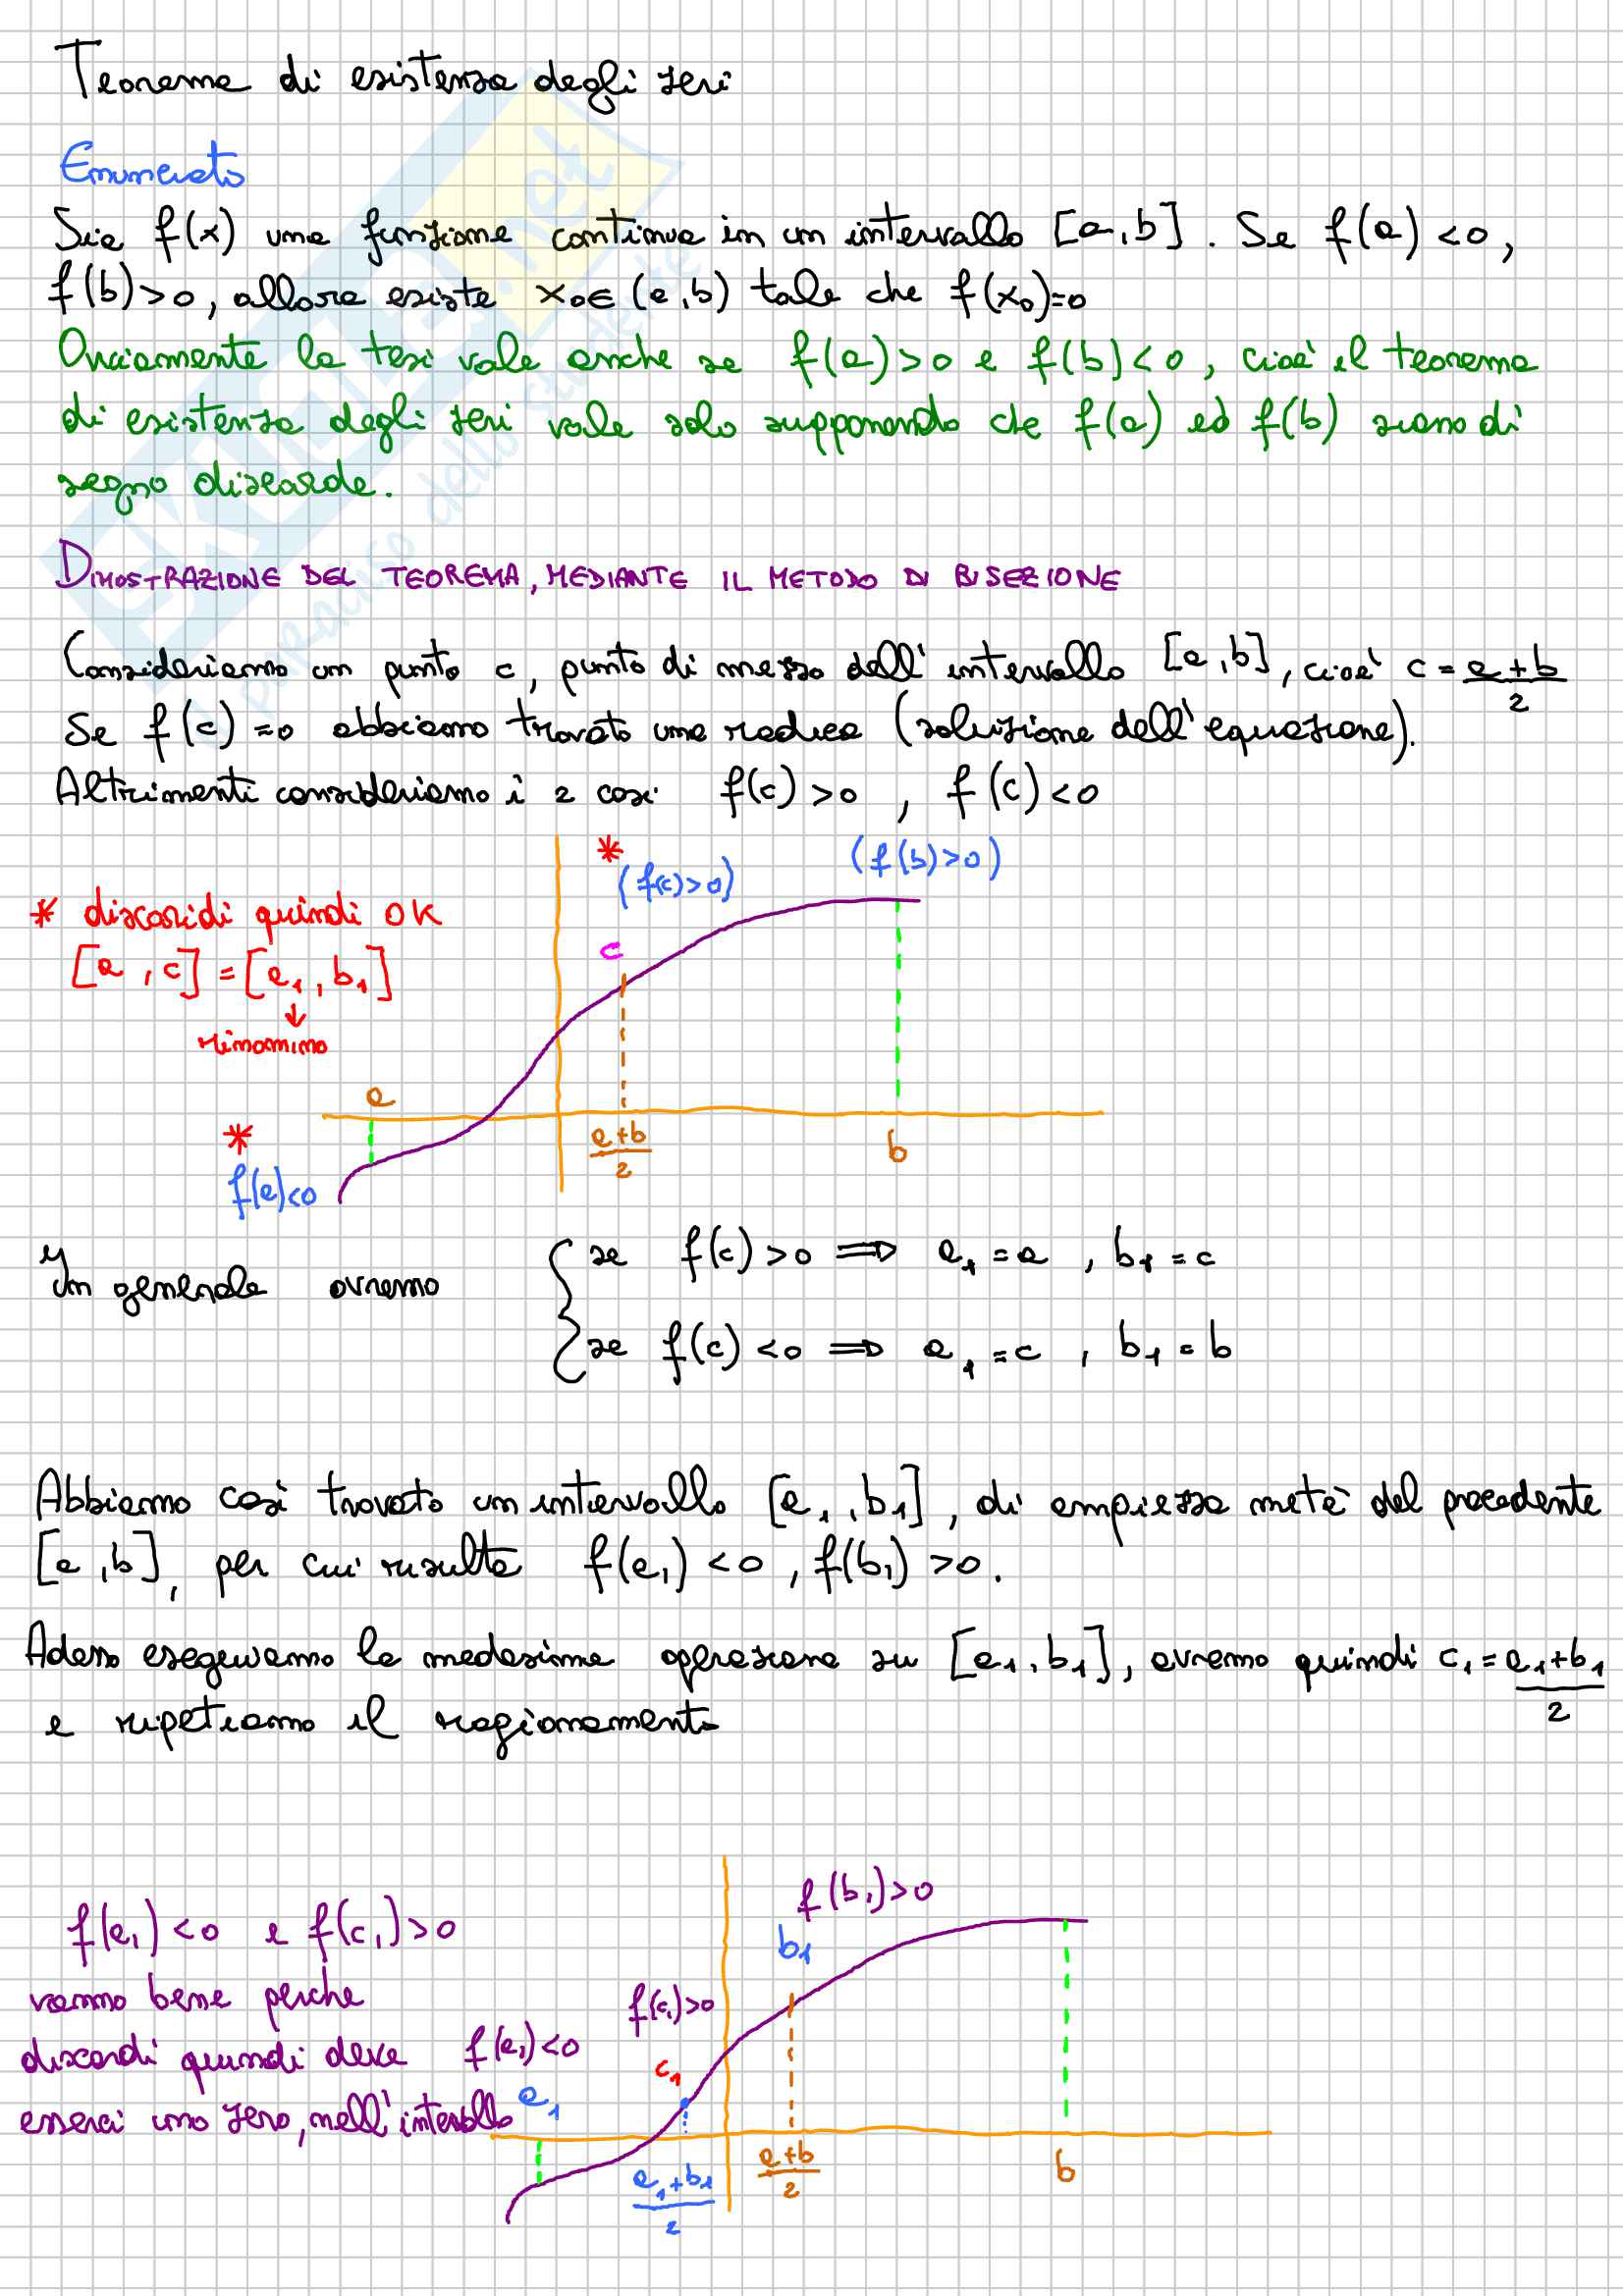 Teorema di esistenza degli zeri
Enunciato
Sia f(x) una funzione continua in un intervallo [a,b]. Se f(a)<0,
f(b)>0, allora esiste x₀∈(a,b) tale che f(x₀)=0
Ovviamente la tesi vale anche se f(a)>0 e f(b)<0, cioè il teorema
di esistenza degli zeri vale solo supponendo che f(a) ed f(b) siano di
segno discorde.
DIMOSTRAZIONE DEL TEOREMA, MEDIANTE IL METODO DI BISEZIONE
Consideriamo un punto c, punto di mezzo dell'intervallo [a,b], cioè c = (a+b)/2
Se f(c)=0 abbiamo trovato una radice (soluzione dell'equazione).
Altrimenti consideriamo i 2 casi f(c)>0, f(c)<0
* (f(c)>0) (f(b)>0)
* discordi quindi OK
[a,c]=[a₁,b₁]
↓
rinomino
c
a
*
f(a)<0
(a+b)/2
b
In generale avremo
se f(c)>0 ⟹ a₁=a, b₁=c
se f(c)<0 ⟹ a₁=c, b₁=b
Abbiamo così trovato un intervallo [a₁,b₁], di ampiezza metà del precedente
[a,b], per cui risulta f(a₁)<0, f(b₁)>0.
Adesso eseguiamo la medesima operazione su [a₁,b₁], avremo quindi c₁=(a₁+b₁)/2
e ripetiamo il ragionamento
f(a₁)<0 e f(c₁)>0
vanno bene perche
discordi quindi deve
esserci uno zero, nell'intervallo
f(b₁)>0
b₁
f(c₁)>0
f(a₁)<0
c₁
a₁
(a₁+b₁)/2
(a+b)/2
b
SKUOLA.net
il paradiso dello studente